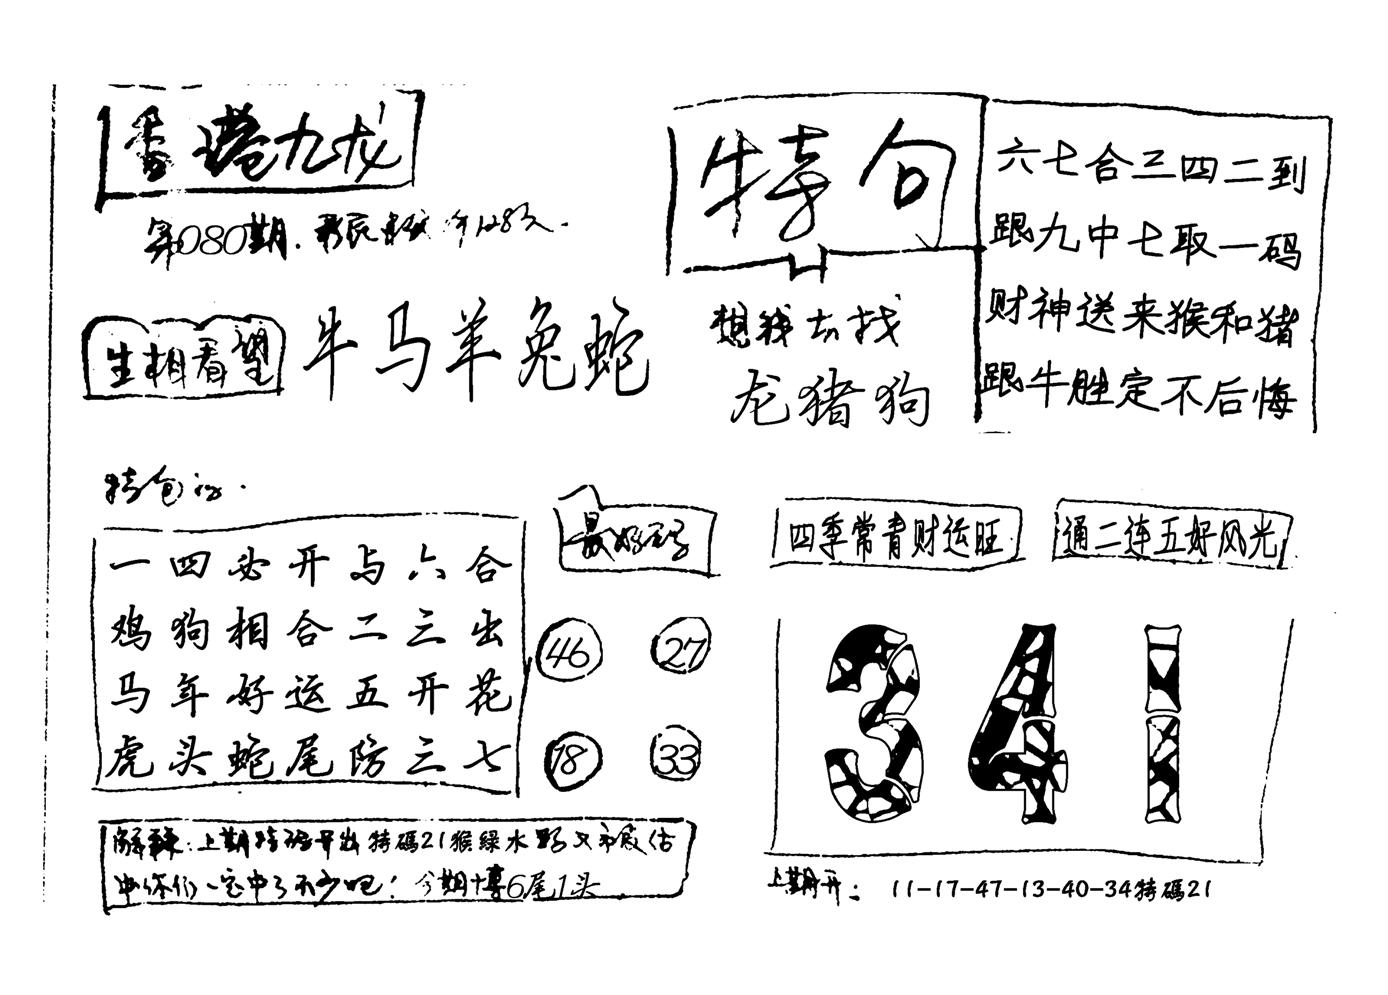 香港九龙
第080期.
特句
六七合三四二到
跟九中七取一码
财神送来猴和猪
跟牛胜定不后悔
生相看望
牛马羊兔蛇
想我去找
龙猪狗
特包
一四必开与六合
鸡狗相合二三出
马年好运五开花
虎头蛇尾防三七
最好
46 27
18 33
四季常青财运旺
通二连五好风光
341
解:上期特码开出特碼21猴綠水
中你们一定中了不少吧!今期十博6尾1头
上期开: 11-17-47-13-40-34特碼21